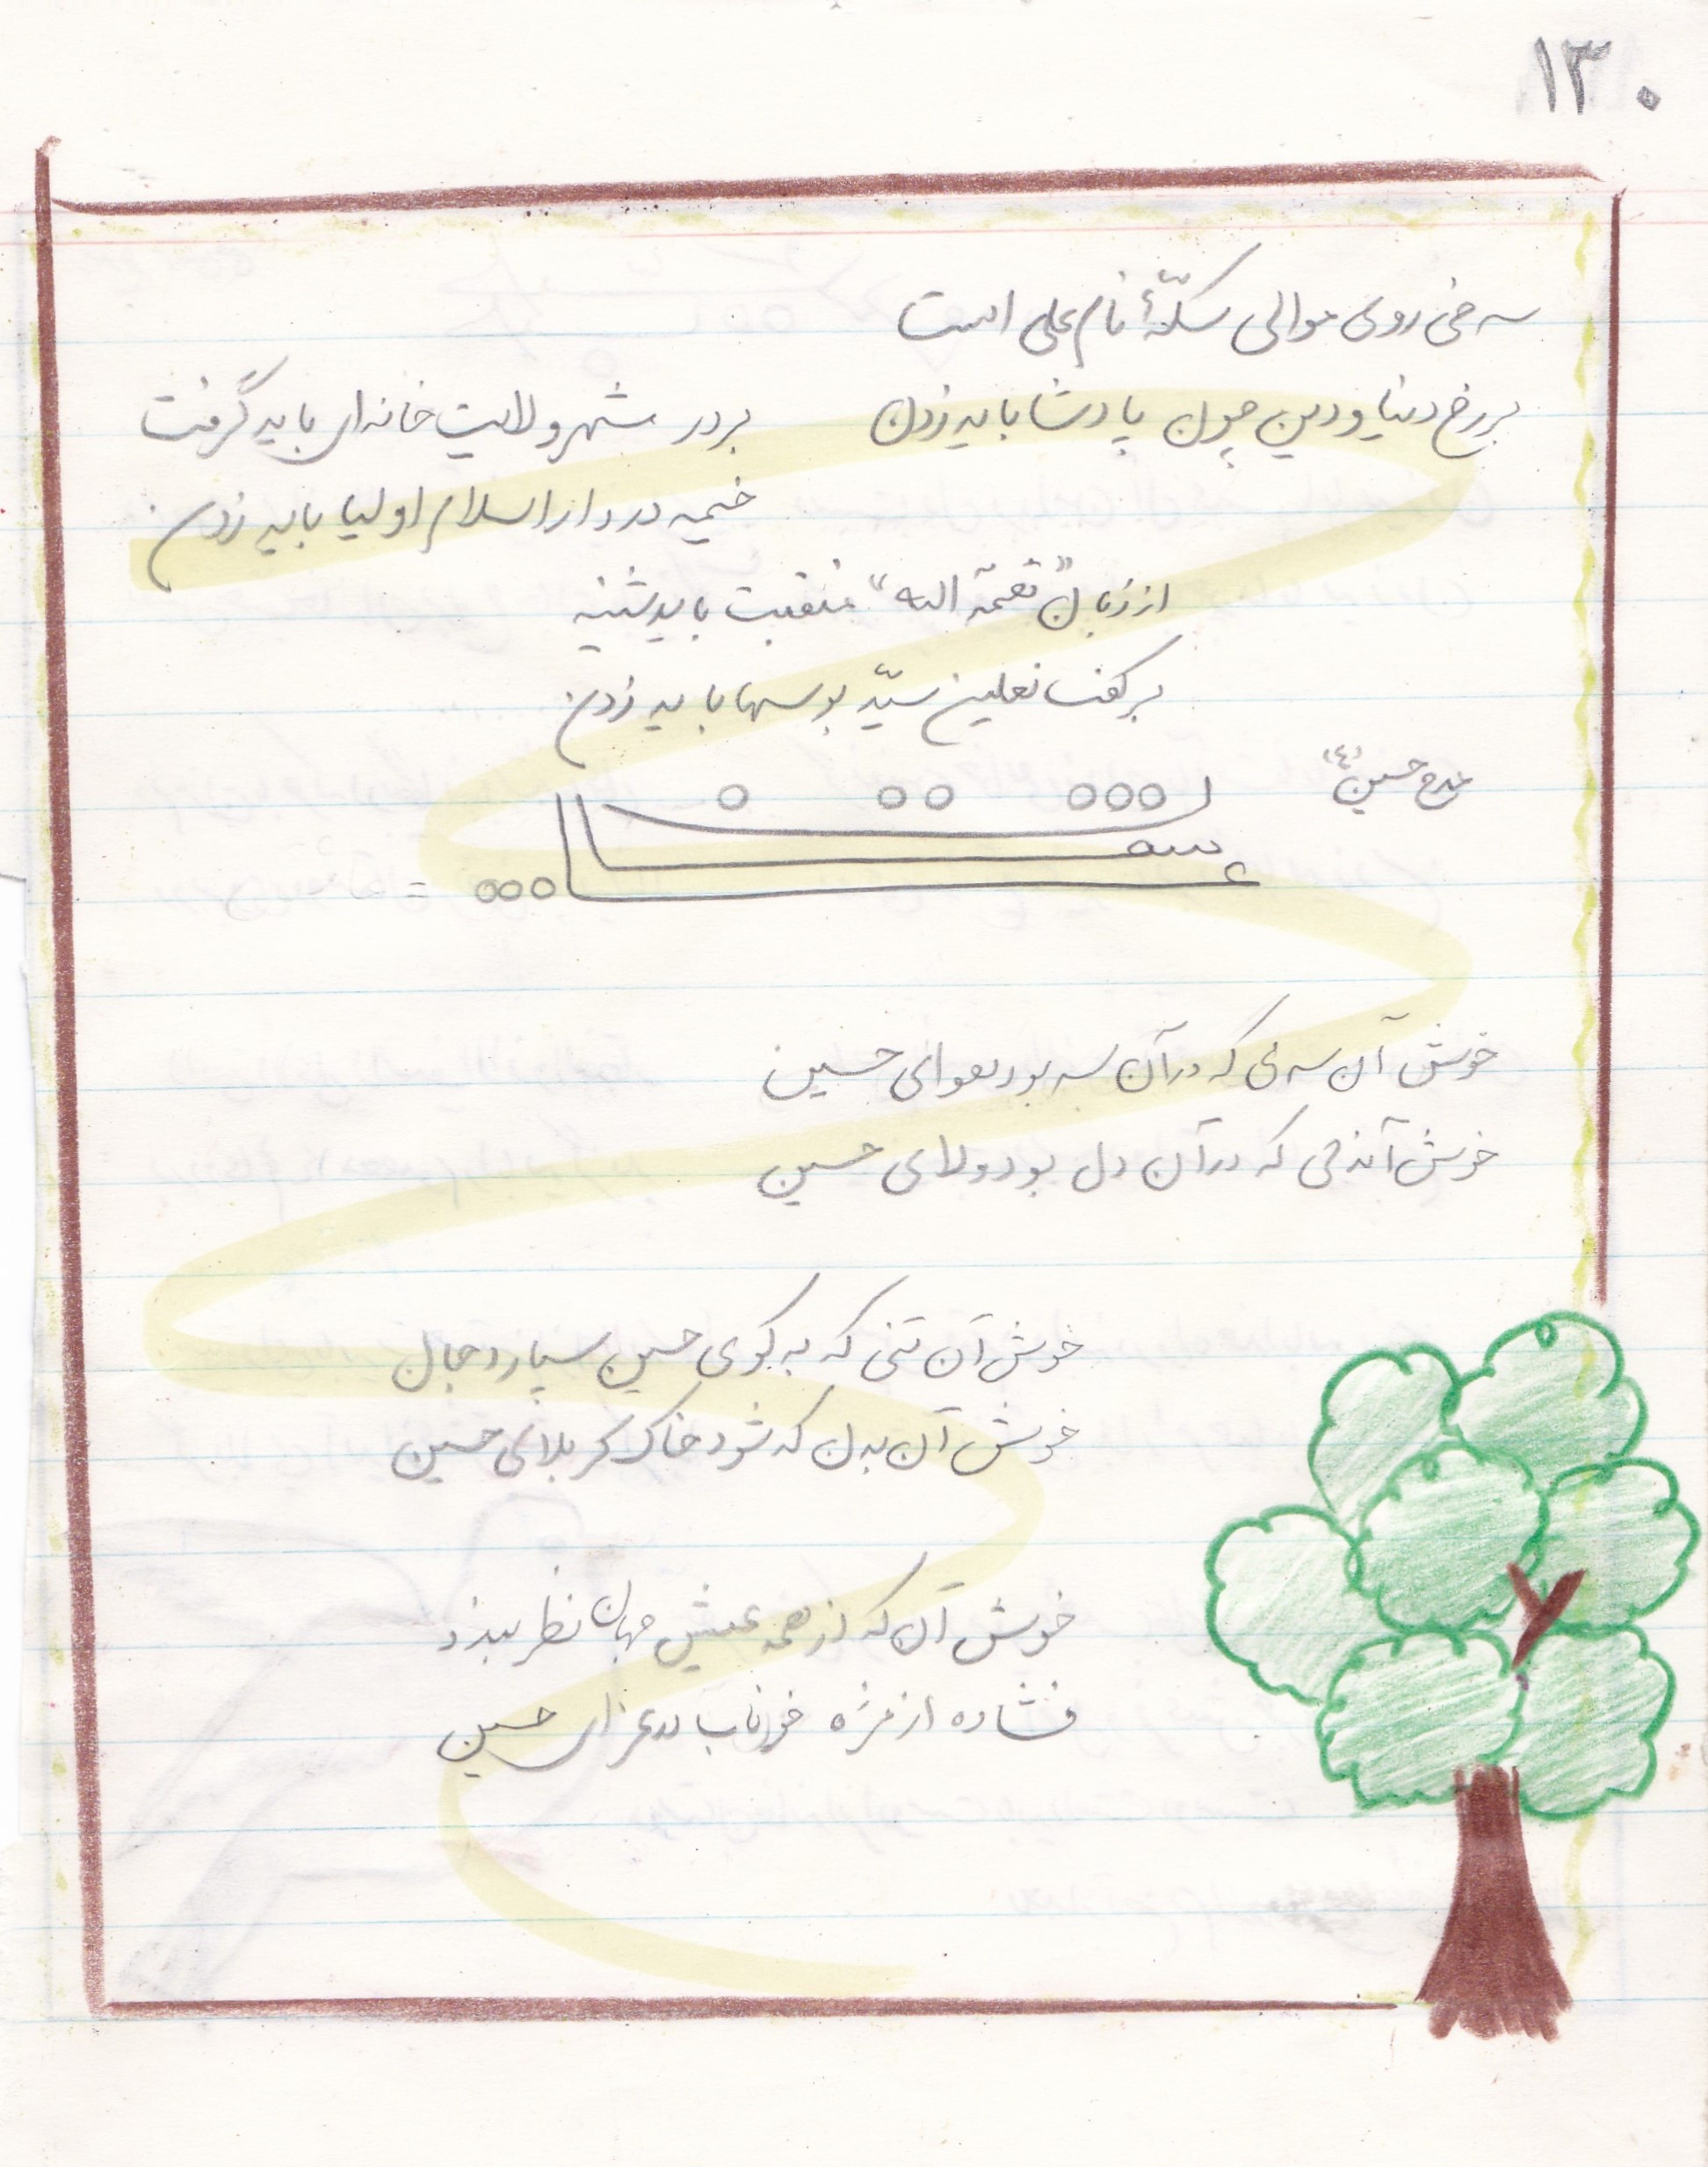 ۱۳۰
سرخی روی موالی سکّهٔ نام علی است
بر رخ دنیا و دین چون پادشا باید زدن
بر در شهر ولایت خانه‌ای باید گرفت
خیمه در دار اسلام اولیا باید زدن
از زبان "نعمة الله" منقبت باید شنید
بر کف نعلین سیّد بوسها باید زدن
مدح حسین (ع)
خوش آن سری که در آن سر بود هوای حسین
خوش آندمی که در آن دل بود ولای حسین
خوش آن تنی که به کوی حسین سپارد جان
خوش آن بدن که شود خاک کربلای حسین
خوش آن که از همه عیش جهان نظر ببندد
فشاده از مژه خوناب در عزای حسین